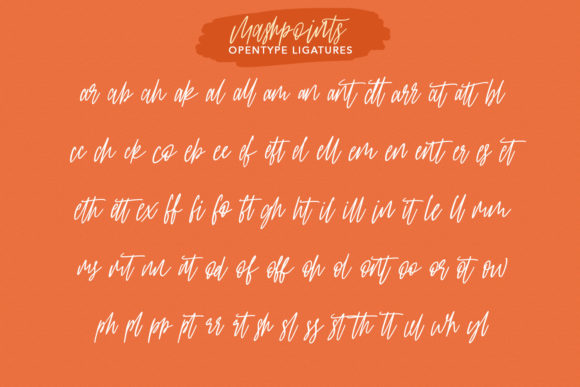 Mashpoints
OPENTYPE LIGATURES
ar ab ah ak al all am an ant arr at att bl
cc ch ck co eb ee ef eft el ell em en ent er es et
eth ett ex ff fi fo ft gh ht il ill in it le ll mm
nn od of off oh ol ont oo or ot ow
ph pl pp pt rr rt sh sl ss st th tt wh yl